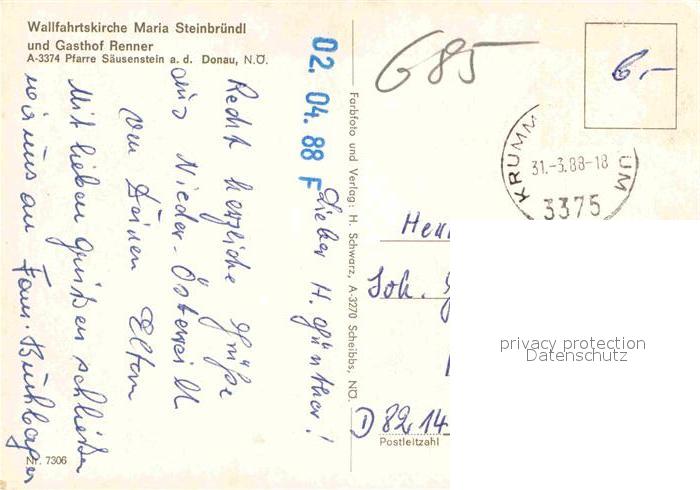 Wallfahrtskirche Maria Steinbründl
und Gasthof Renner
A-3374 Pfarre Säusenstein a. d. Donau, N.Ö.
02. 04. 88 F
Lieber H. Günther!
Recht herzliche Grüße
aus Nieder-Österreich
von Deinen Eltern
Mit lieben Grüßen schließen
wir uns an Fam.
Nr. 7306
Farbfoto und Verlag: H. Schwarz, A-3270 Scheibbs, NÖ.
685
6,-
KRUMM UM
31.-3.88-18
3375
Joh.
D 8214
Postleitzahl
privacy protection
Datenschutz